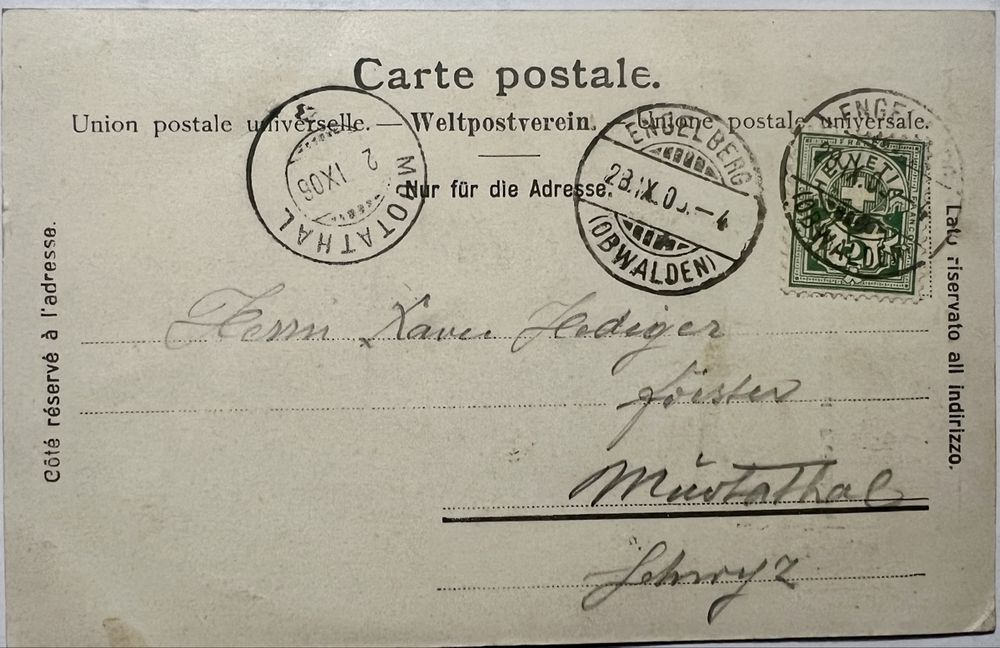 Carte postale.
Union postale universelle. — Weltpostverein. — Unione postale universale.
Nur für die Adresse.
Côté réservé à l'adresse.
Lato riservato all indirizzo.
MUOTATHAL
2 IX 06
ENGELBERG
28.IX.0 .–4
(OBWALDEN)
ENGELBERG
(OBWALDEN)
HELVETIA
FRANCO
Herrn Xaver Hediger
förster
Muotathal
Schwyz